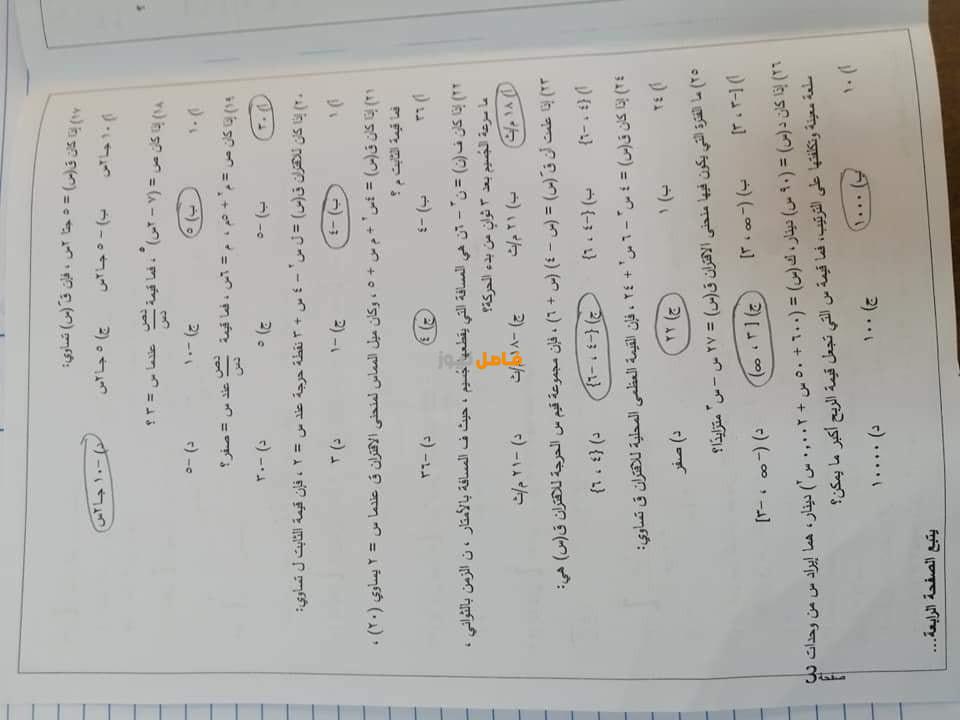 ١٧) إذا كان ق(س) = ٥ جتا ٢س ، فإن قَ(س) تساوي:
أ) ١٠ جا٢س ب) -٥ جا٢س ج) ٥ جا٢س د) -١٠ جا٢س
١٨) إذا كان ص = (٧ - ٢س)^٥ ، فما قيمة دص/دس عندما س = ٣ ؟
أ) ١٠ ب) ٥ ج) -١٠ د) -٥
١٩) إذا كان ص = م^٢ + ٥م ، م = ٦س ، فما قيمة دص/دس عند س = صفر؟
أ) ٣٠ ب) -٥ ج) ٥ د) -٣٠
٢٠) إذا كان للاقتران ق(س) = ل س^٢ - ٤ س + ٣ نقطة حرجة عند س = ٢ ، فإن قيمة الثابت ل تساوي:
أ) ١ ب) -٤ ج) -١ د) ٣
٢١) إذا كان ق(س) = ٤س^٢ + م س + ٥ ، وكان ميل المماس لمنحنى الاقتران ق عندما س = ٢ يساوي (٢٠) ،
فما قيمة الثابت م ؟
أ) ٣٦ ب) -٤ ج) ٤ د) -٣٦
٢٢) إذا كان ف(ن) = ن^٣ - ٦ن هي المسافة التي يقطعها جسيم ، حيث ف المسافة بالأمتار ، ن الزمن بالثواني ،
ما سرعة الجسيم بعد ٣ ثوانٍ من بدء الحركة؟
أ) ١٨ م/ث ب) ٢١ م/ث ج) -١٨ م/ث د) -٢١ م/ث
٢٣) إذا علمت أن قَ(س) = (س - ٤) (س + ٦) ، فإن مجموعة قيم س الحرجة للاقتران ق(س) هي:
أ) {٤ ، -٦} ب) {-٤ ، ٦} ج) {-٤ ، -٦} د) {٤ ، ٦}
٢٤) إذا كان ق(س) = ٤ س^٣ - ٦ س^٢ + ٢٤ ، فإن القيمة العظمى المحلية للاقتران ق تساوي:
أ) ٢٤ ب) ١ ج) ٢٢ د) صفر
٢٥) ما الفترة التي يكون فيها منحنى الاقتران ق(س) = ٢٧ س - س^٣ متزايدًا؟
أ) [-٣ ، ٣] ب) (-∞ ، ٣] ج) [٣ ، ∞) د) (-∞ ، -٣]
٢٦) إذا كان د(س) = (٩٠ س) دينار ، ك(س) = (٦٠٠ + ٥٠ س + ٠.٠٠٢ س^٢) دينار ، هما إيراد س من وحدات
سلعة معينة وتكلفتها على الترتيب، فما قيمة س التي تجعل قيمة الربح أكبر ما يمكن؟
أ) ١٠ ب) ١٠٠٠ ج) ١٠٠ د) ١٠٠٠٠
يتبع الصفحة الرابعة...
فاصل نيوز